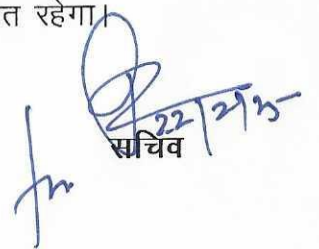 त रहेगा।
22/2/25
सचिव